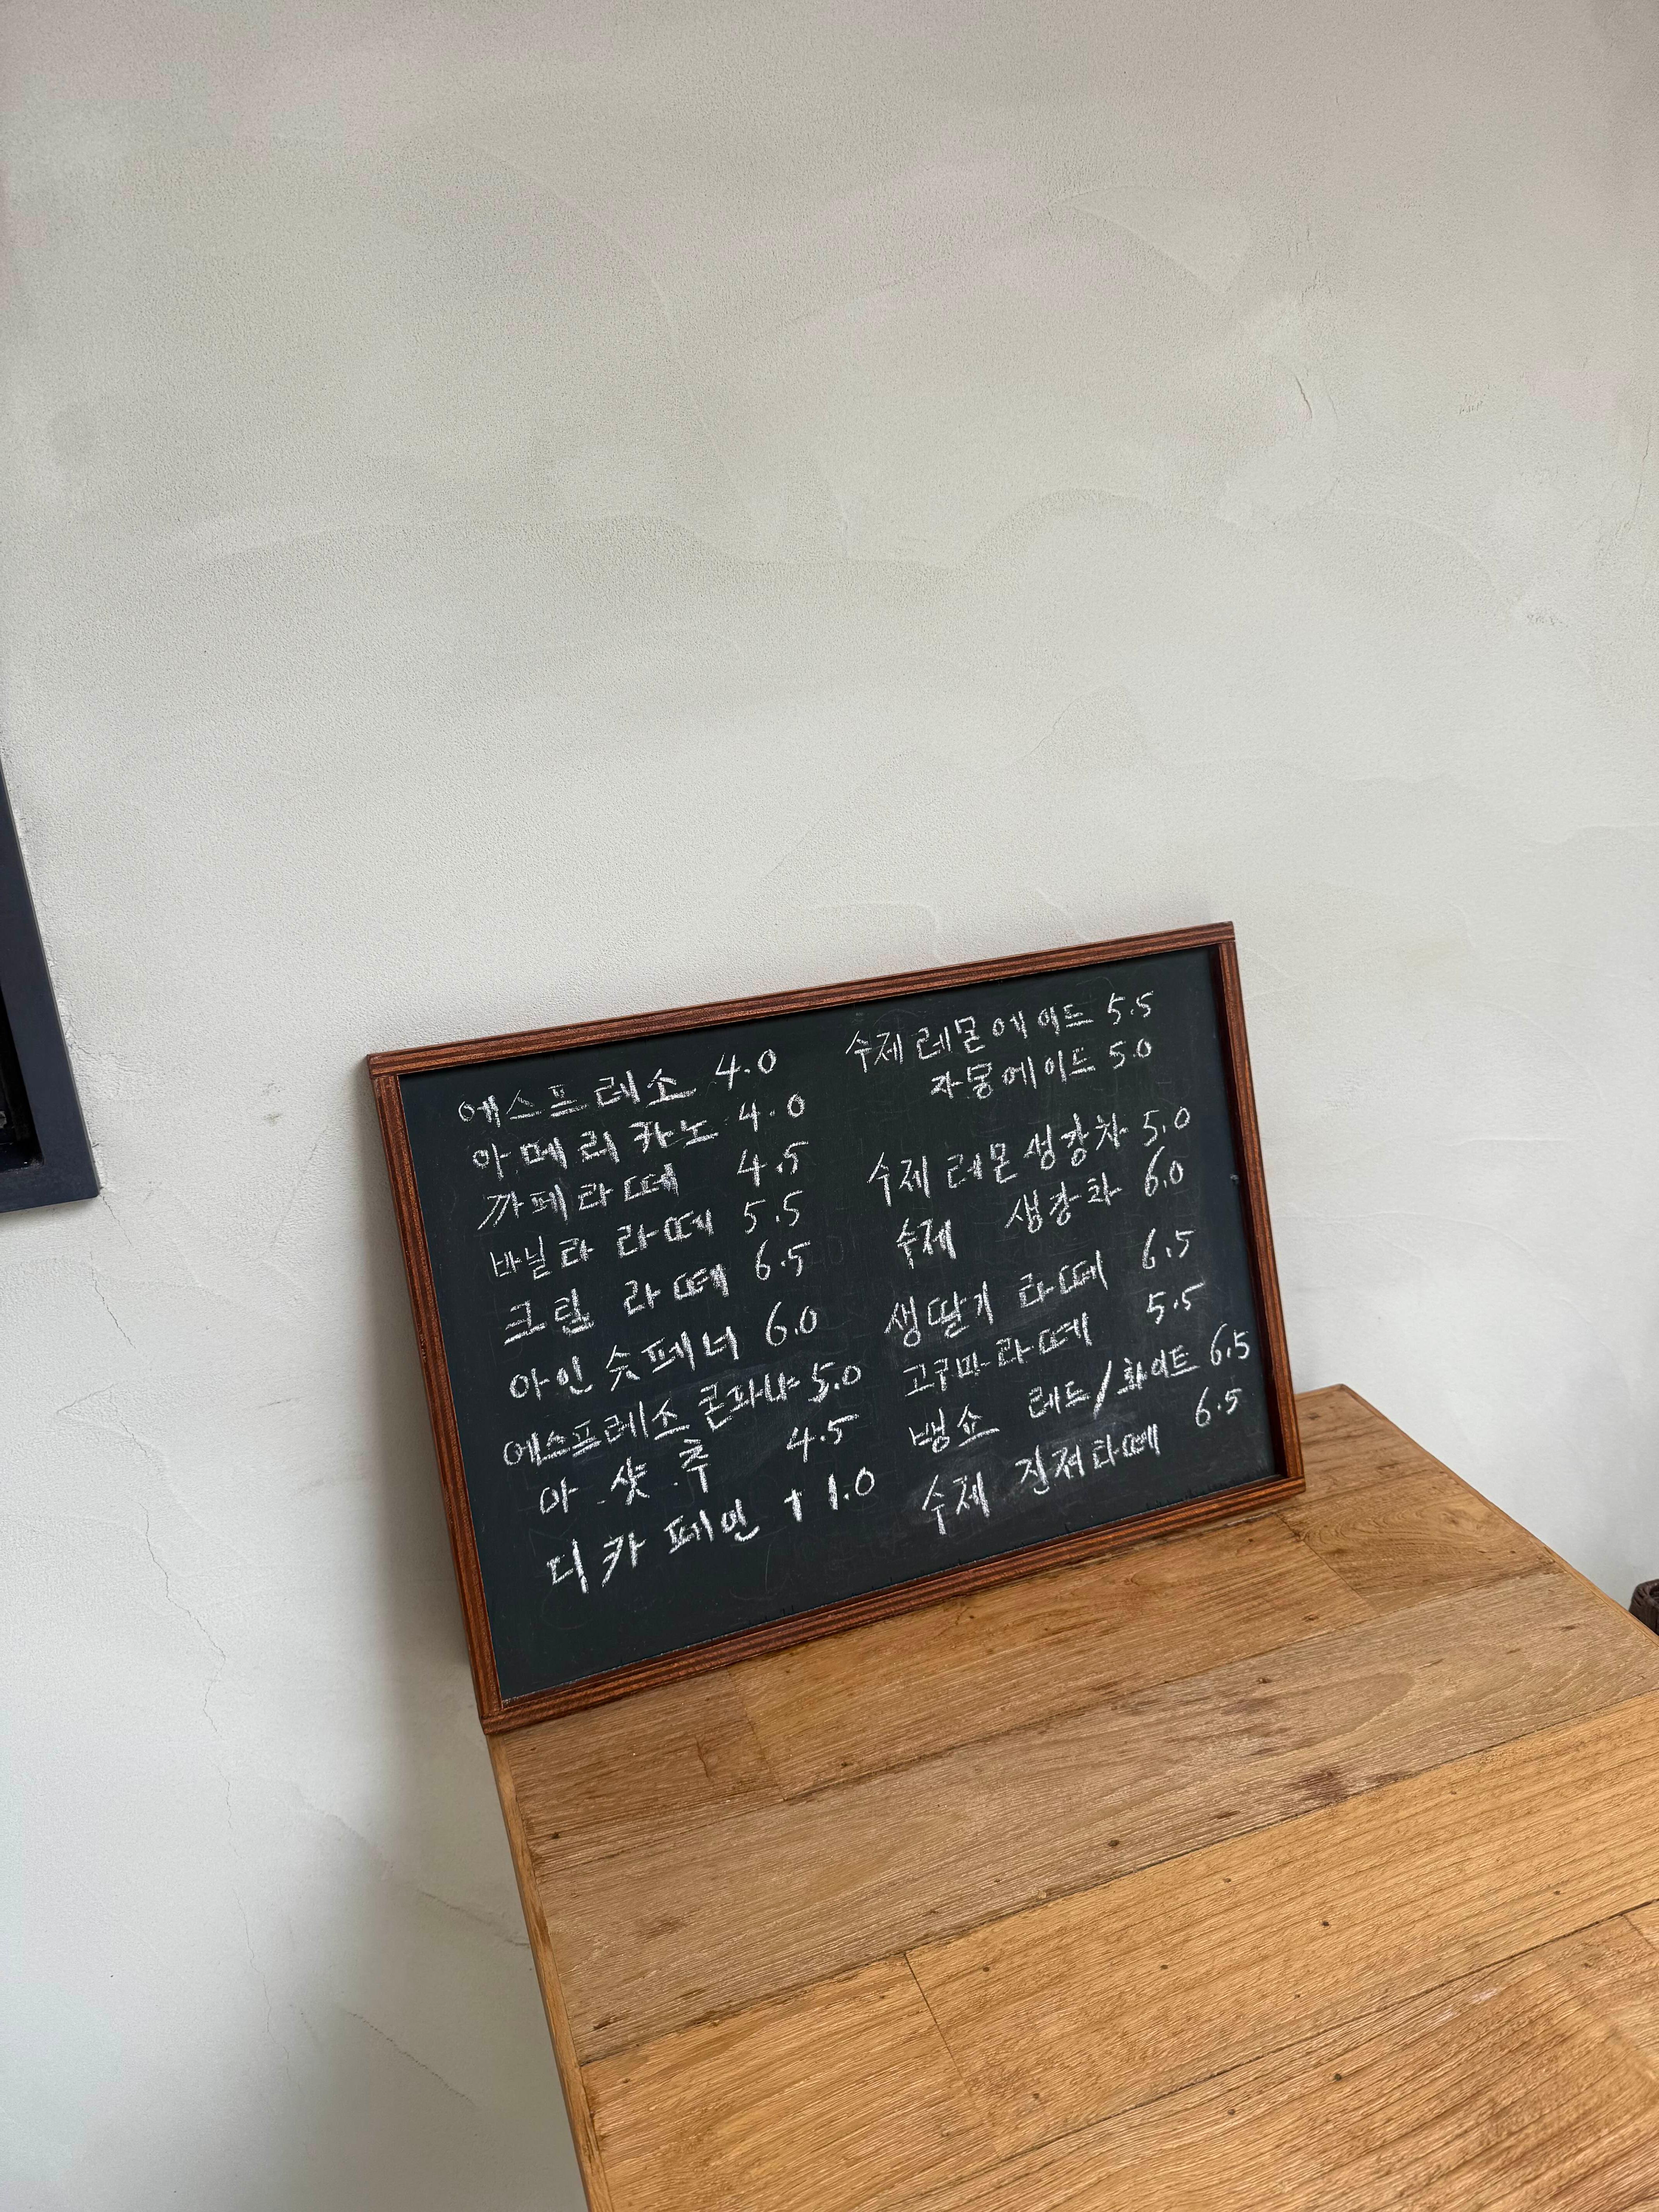 에스프레소 4.0
아메리카노 4.0
까페라떼 4.5
바닐라 라떼 5.5
크림 라떼 6.5
아인슈페너 6.0
에스프레소 콘파냐 5.0
아.샷.추 4.5
디카페인 +1.0
수제레몬에이드 5.5
자몽에이드 5.0
수제 레몬생강차 5.0
수제 생강차 6.0
생딸기 라떼 6.5
고구마라떼 5.5
뱅쇼 레드/화이트 6.5
수제 진저라떼 6.5